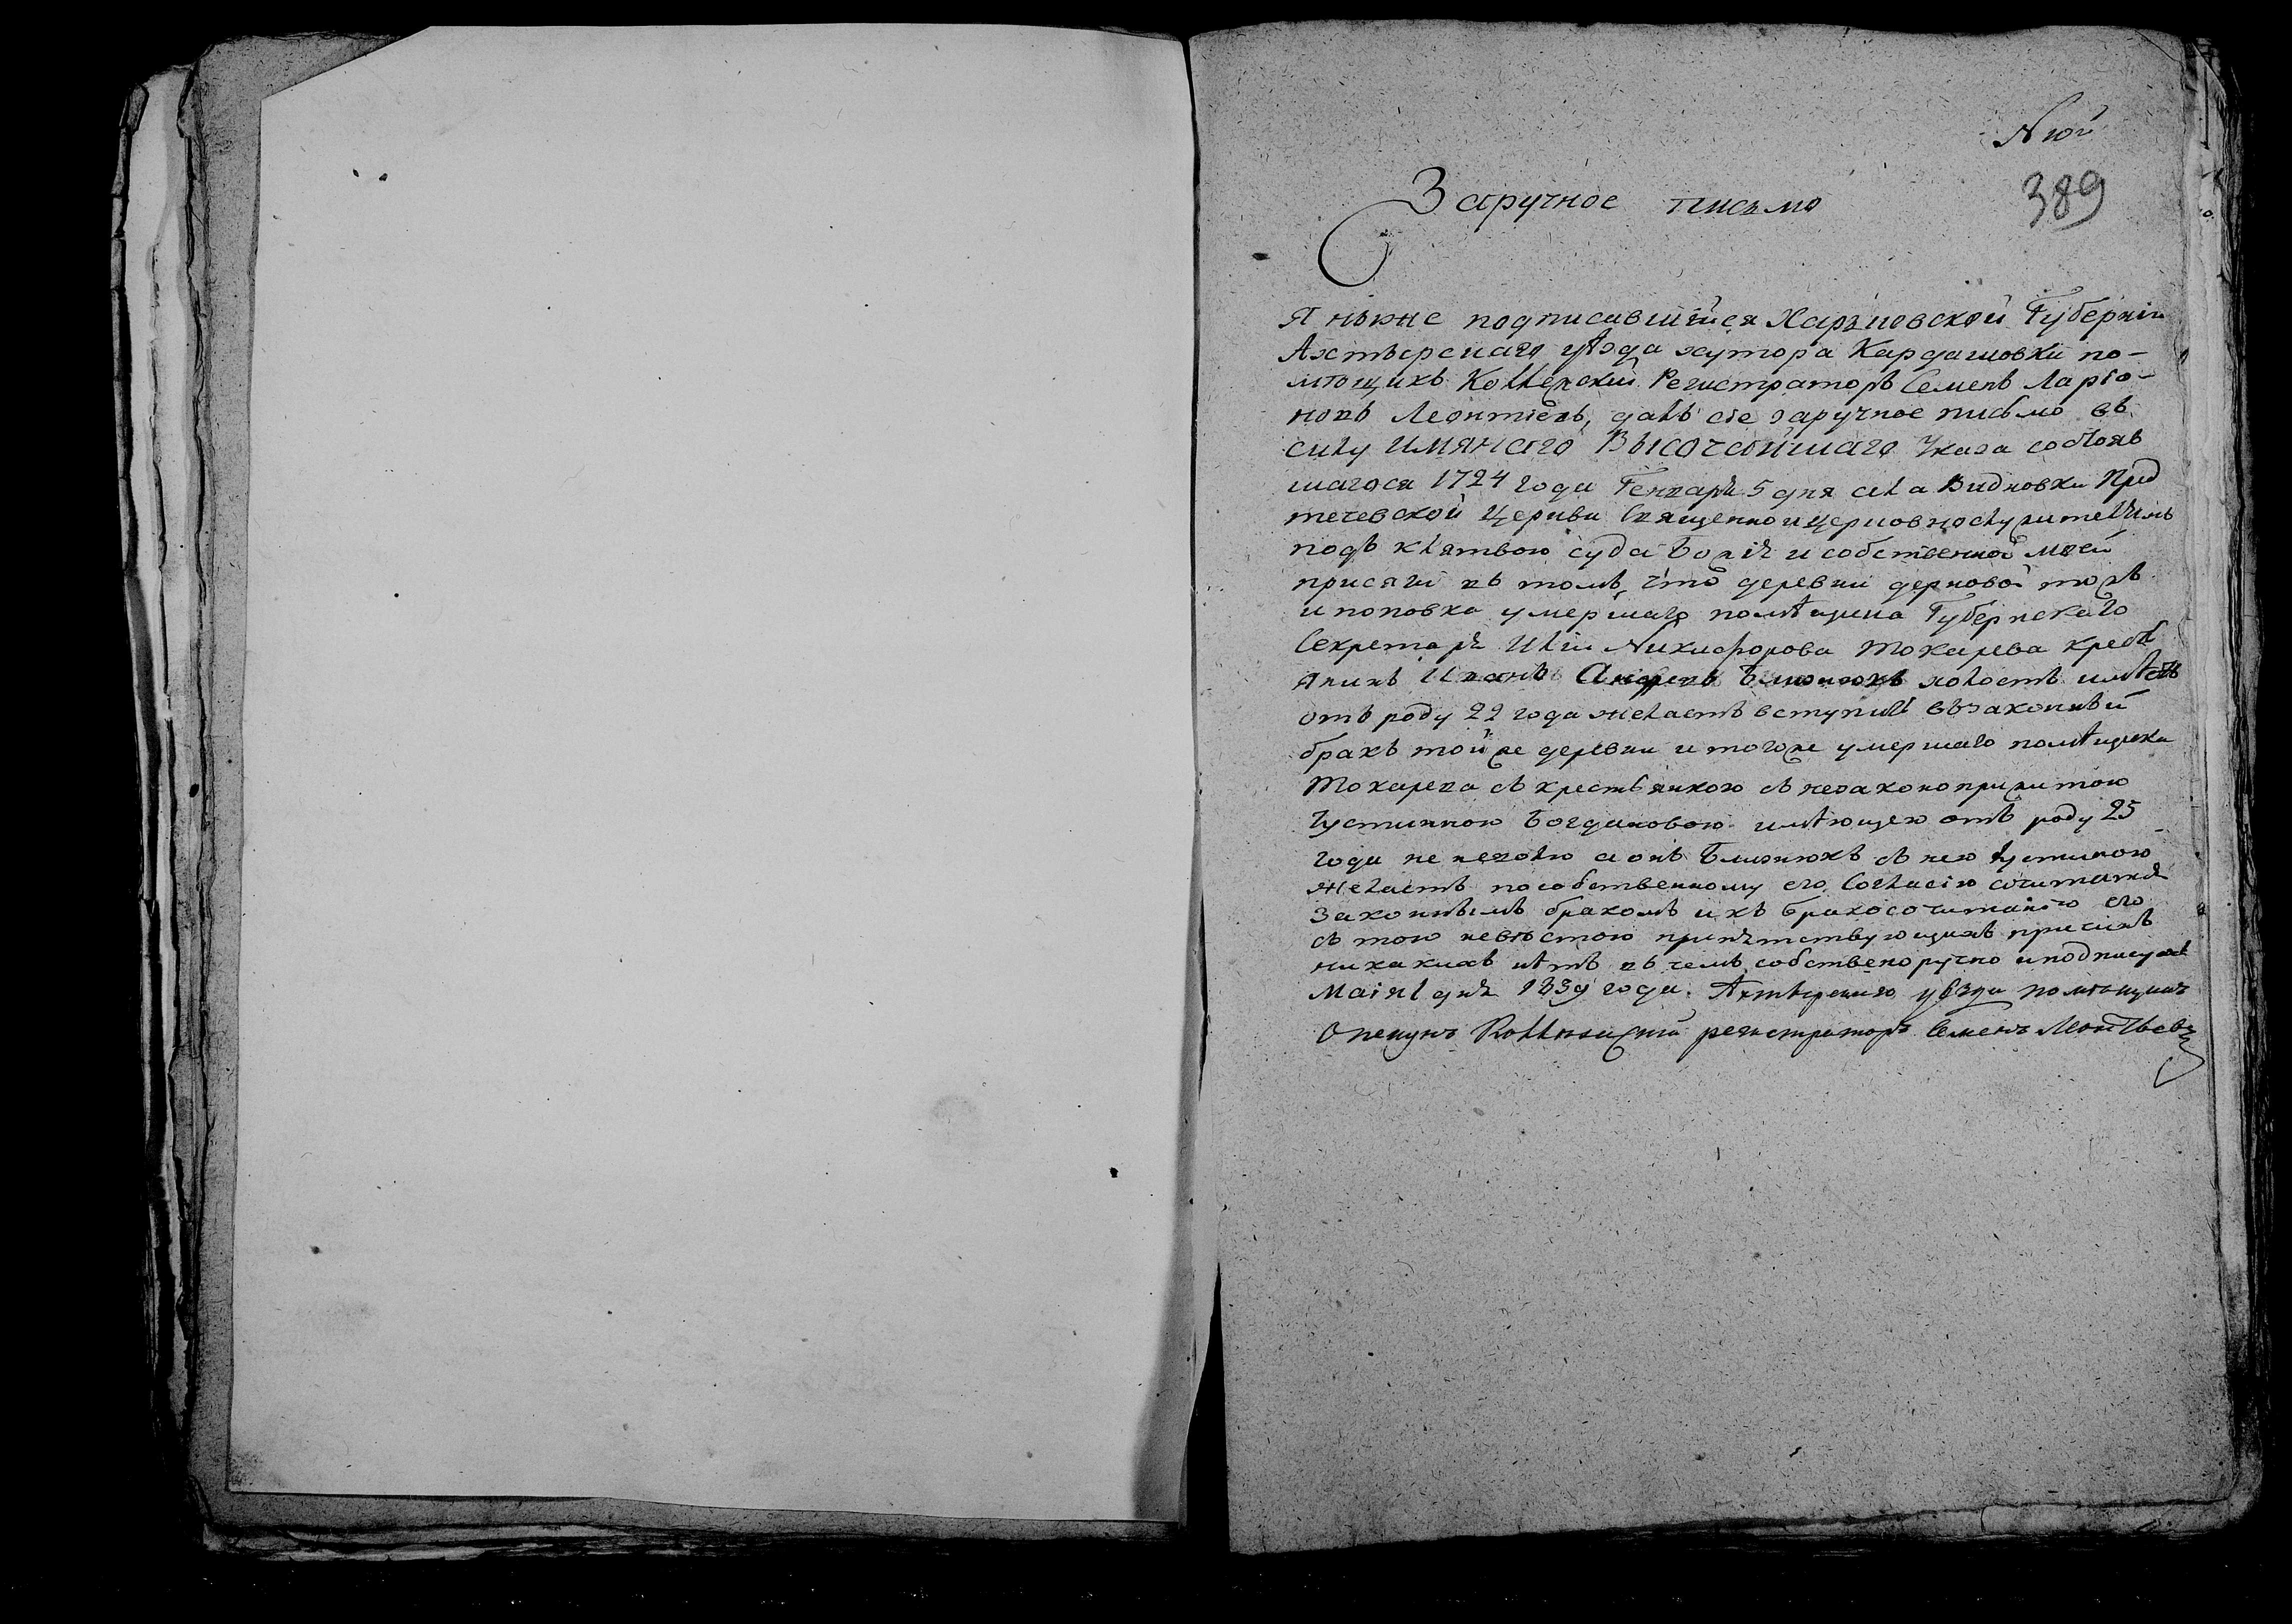 N 10й
389
Заручное письмо
Я ниже подписавшійся Харьковской Губерніи
Ахтырскаго уѣзда хутора Кардашовки по-
мѣщикъ Коллежскій Регистраторъ Семенъ Ларіо-
новъ Леонтіевъ, далъ сіе заручное письмо въ
силу имянаго Высочайшаго Указа состояв
шагося 1724 года Генваря 5 дня села Видновки Пред
течевской Церкви Священно и церковнослужителямъ
подъ клятвою суда Божія и собственной моей
присяги въ томъ, что деревни дерновой тожъ
и поповка умершаго помѣщика Губернскаго
Секретаря Иліи Никифорова Токарева крестьъ
янинъ Иванъ Андреевъ холостъ имѣетъ
отъ роду 22 года желаетъ вступить въ законный
бракъ той же деревни и того же умершаго помѣщика
Токарева съ крестьянкою съ незаконоприжитою
Устинною Богдановою имѣющею отъ роду 25
года не неволю а онъ съ нею Устиною
желаетъ по собственному его согласію сочитатся
законнымъ бракомъ и къ бракосочитанію его
съ тою невѣстою препятствующихъ причинъ
никакихъ нѣтъ въ чемъ собственоручно и подписуюсь
Маія 1 дня 1839 года. Ахтырскаго уѣзда помѣщикъ
Опекунъ Коллежскій регистраторъ Семенъ Леонтьевъ